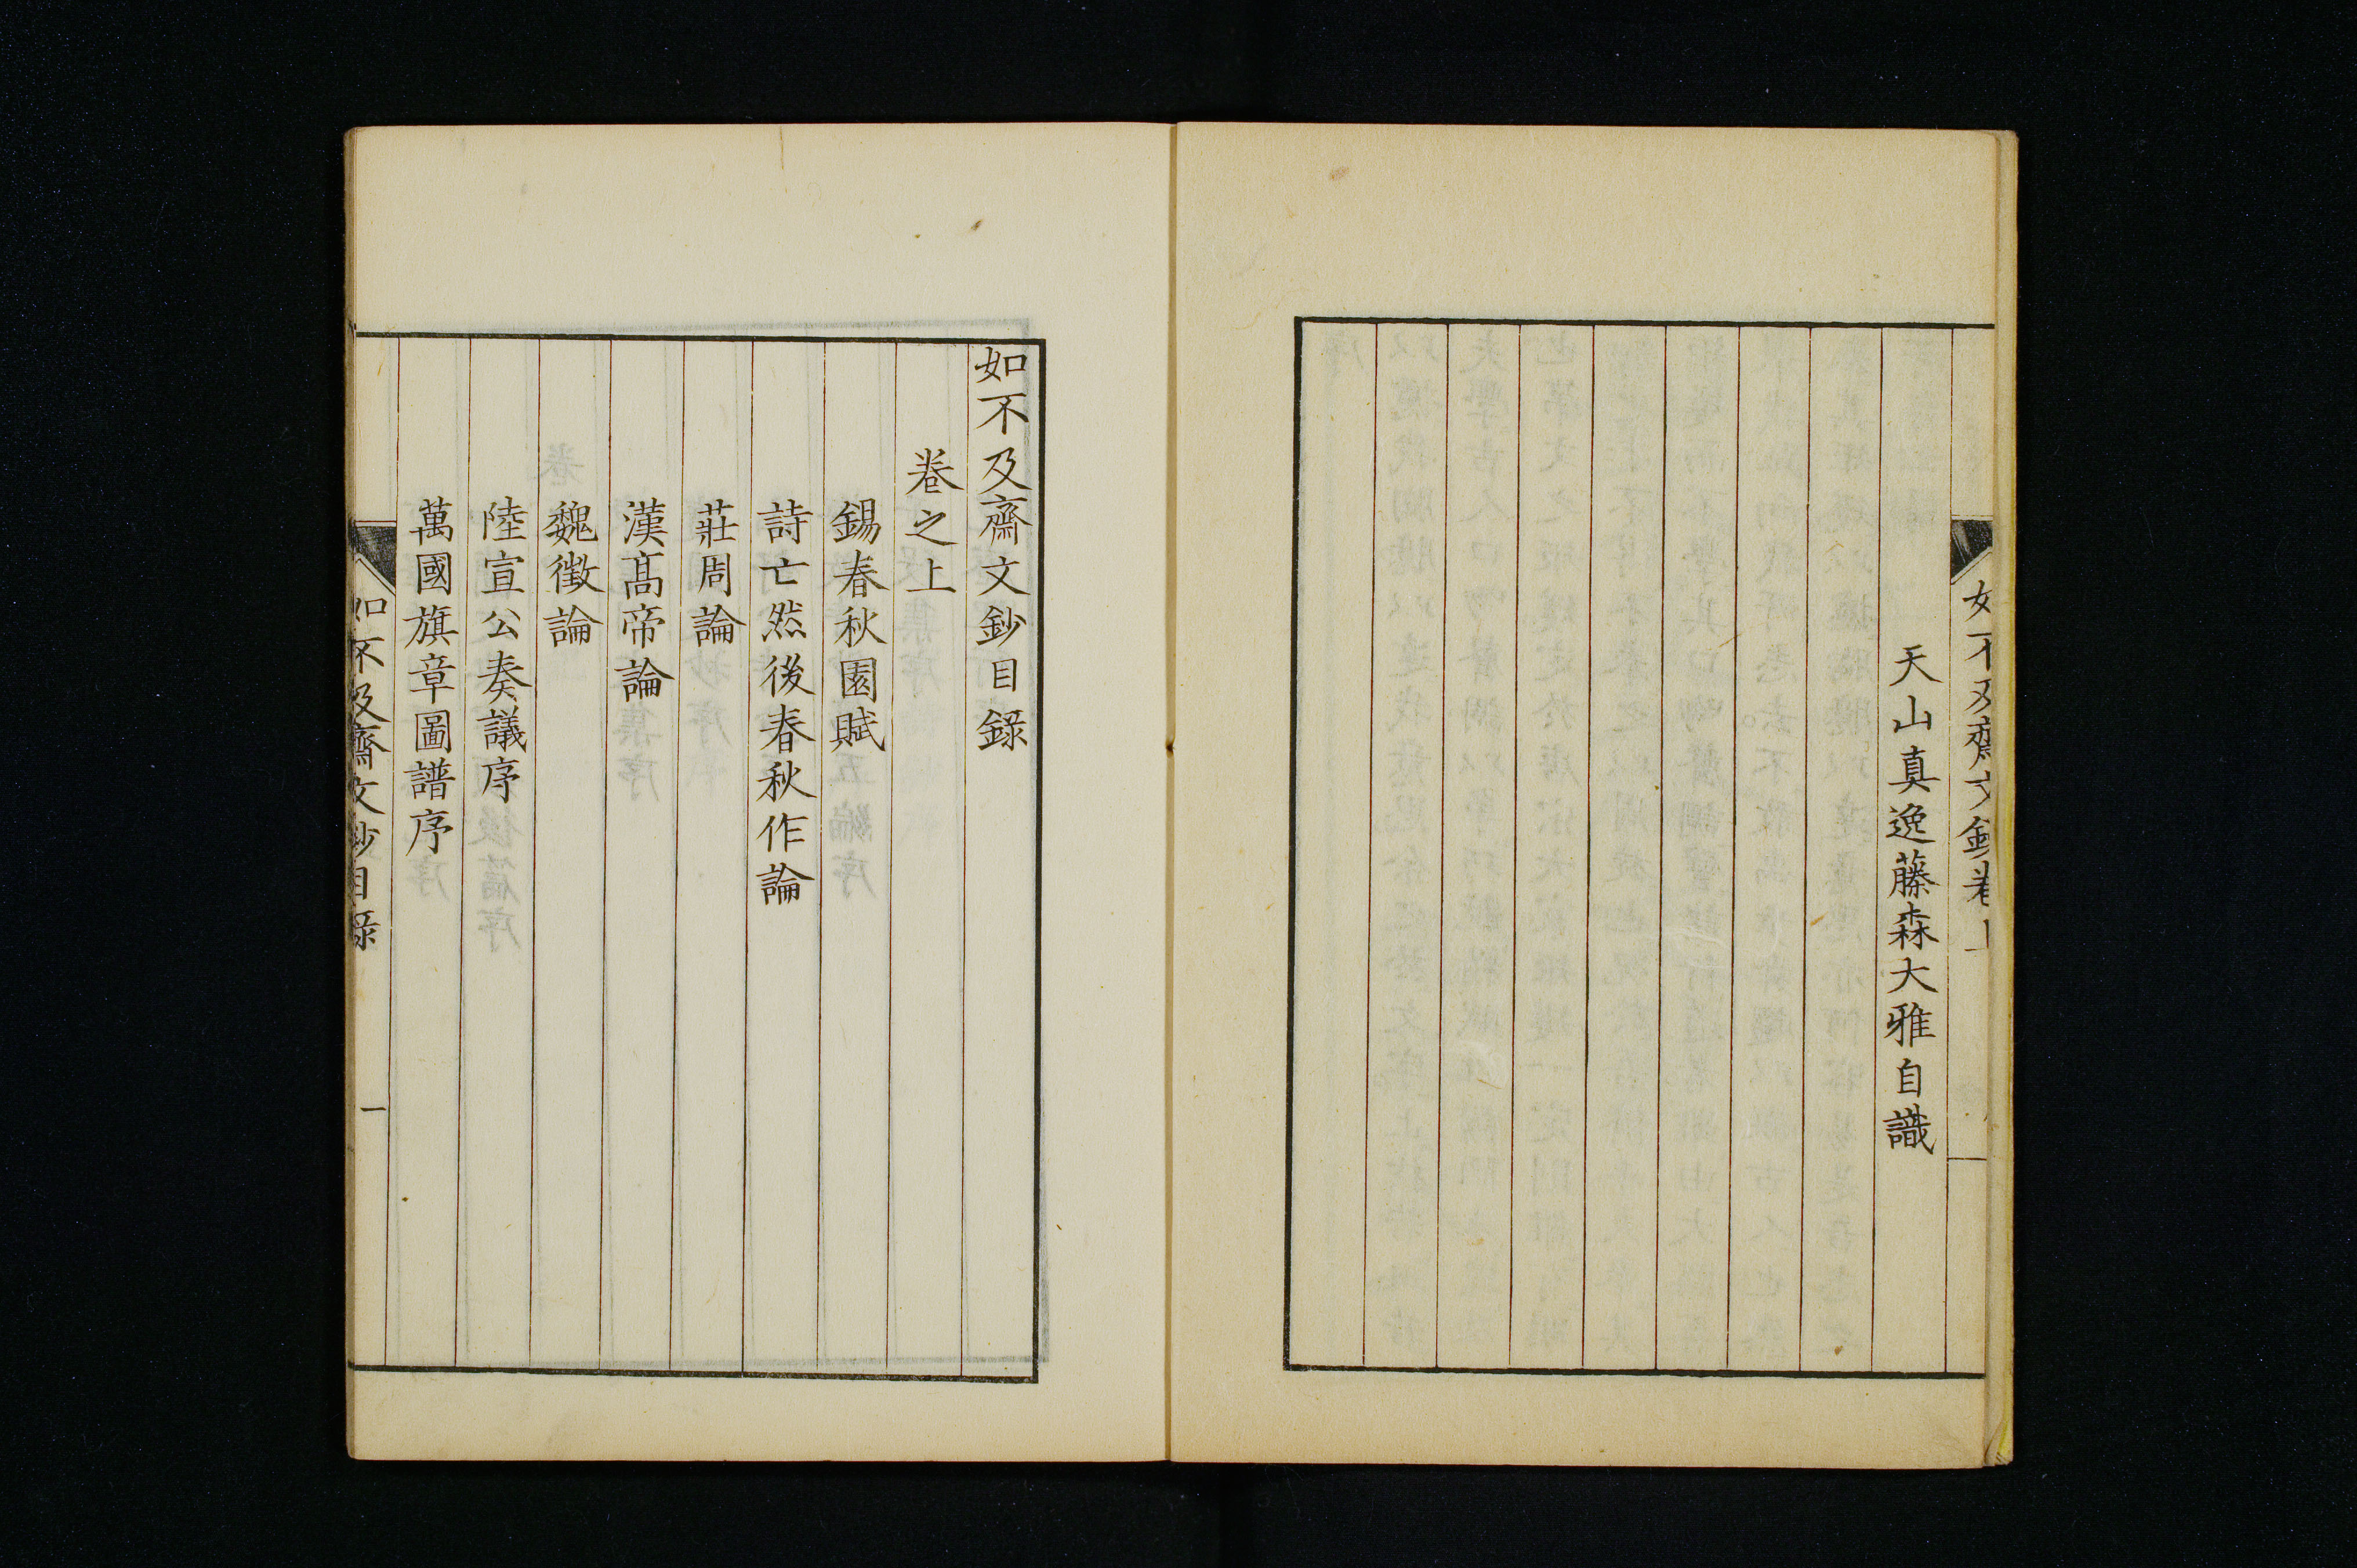 如不及齋文鈔卷上
天山真逸藤森大雅自識
如不及齋文鈔目錄
卷之上
錫春秋園賦
詩亡然後春秋作論
莊周論
漢髙帝論
魏徵論
陸宣公奏議序
萬國旗章圖譜序
如不及齋文鈔目錄 一